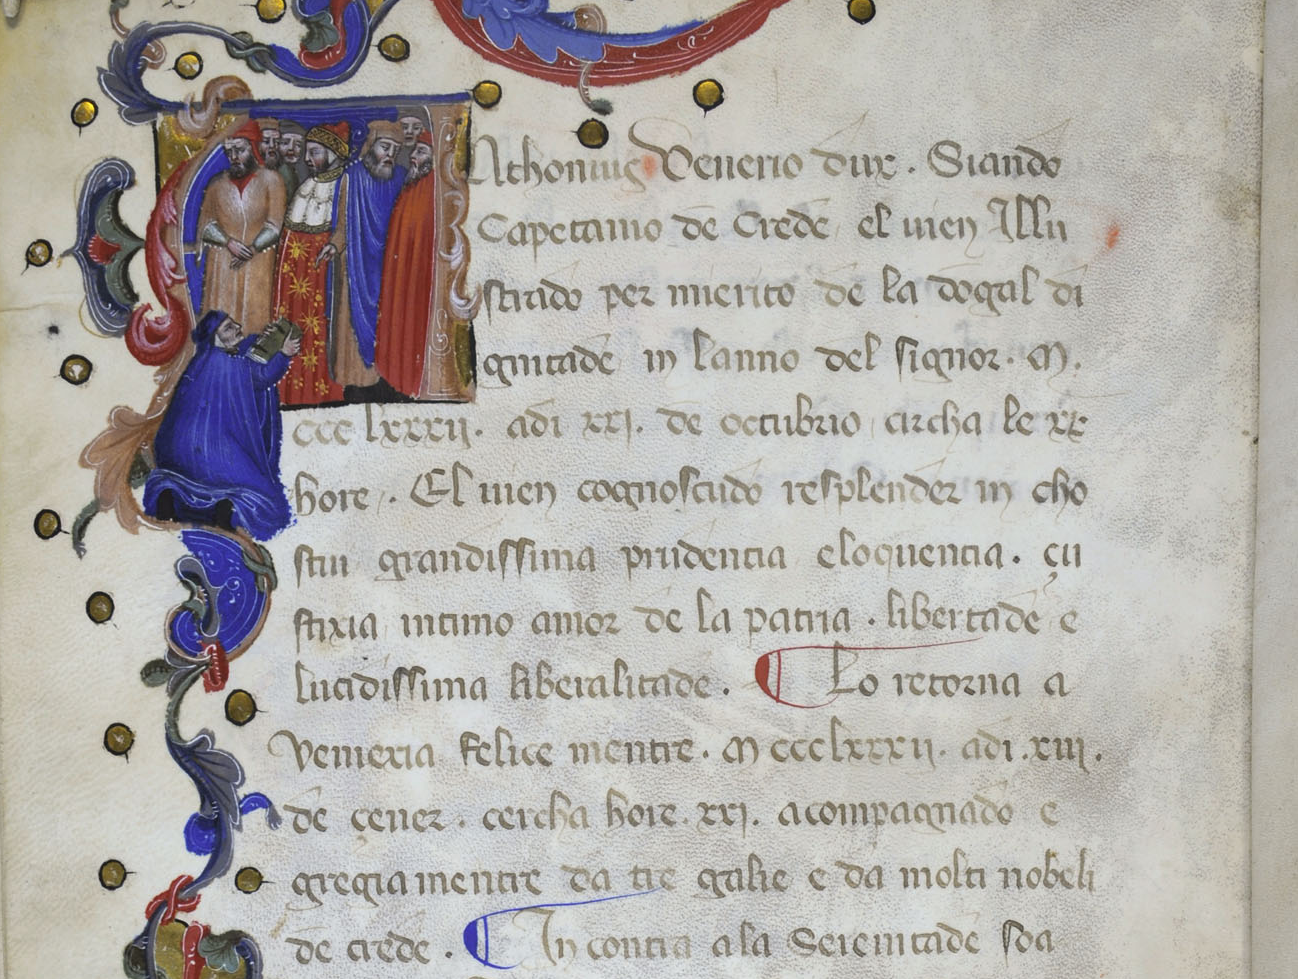 Athonius Venerio dux. Siando
Capetanio de Crede el uien Illu
strado per merito de la dogal di
gnitade in lanno del signor. M.
ccc lxxxij. adi xxj. de octubrio circha le xx
hore. El uien cognoscudo resplender in cho
stui grandissima prudencia eloquencia. çu
stixia intimo amor de la patria. libertade e
lucidissima liberalitade. ¶ Lo retorna a
Veniexia felice mentre. M ccc lxxxij. adi. xiij.
de çener. cercha hore. xxj. acompagnado e
gregiamentre da tre galie e da molti nobeli
de crede. ¶ In contra a la Serenitade soa